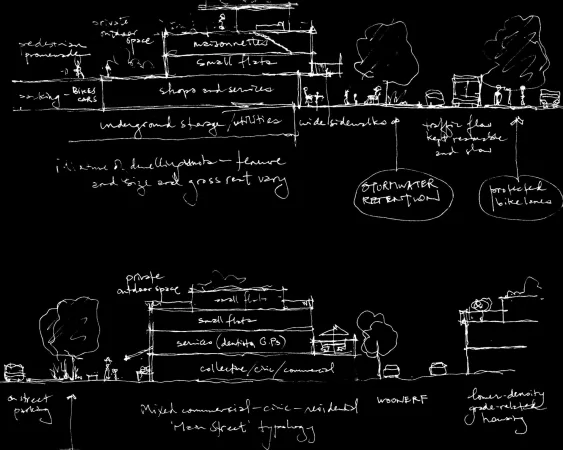 private
outdoor
space
pedestrian
promenade
maisonettes
small flats
parking - BIKES
CARS
shops and services
underground storage/utilities
wide sidewalks
traffic flow
kept reasonable
and slow
mixture of dwelling units — tenure
and size and gross rent vary
STORMWATER
RETENTION
protected
bike lanes
private
outdoor space
small flats
small flats
services (dentists, G.P.s)
collective/civic/commercial
on street
parking
Mixed commercial-civic-residential
'Main Street' typology
WOONERF
lower-density
grade-related
housing